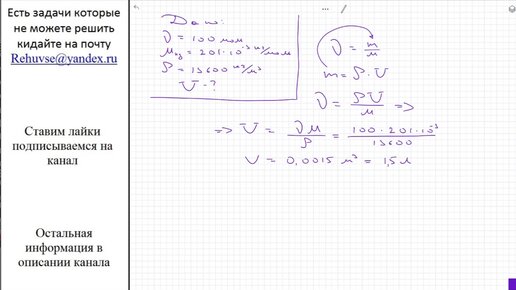 Есть задачи которые
не можете решить
кидайте на почту
Rehuvse@yandex.ru
Ставим лайки
подписываемся на
канал
Остальная
информация в
описании канала
Дано:
ν = 100 моль
M = 201·10⁻³ кг/моль
ρ = 13600 кг/м³
V - ?
ν = m/M
m = ρ · V
ν = ρV/M =>
=> V = νM/ρ = 100 · 201·10⁻³/13600
V = 0,0015 м³ = 1,5 л